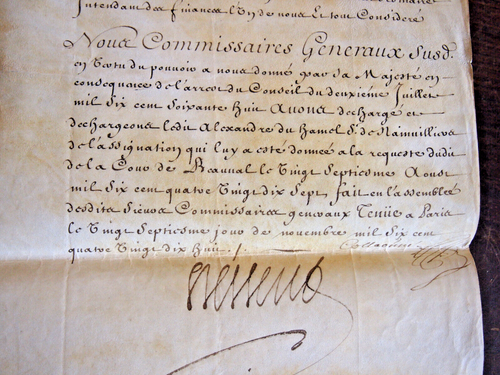 Intendant des finances l'un de nous Et tout Considéré
Nous Commissaires Generaux Susd.
en Vertu du pouvoir a nous donné par Sa Majesté en
consequance de l'arrest du Conseil du deuxiéme Juillet
mil Six cent Soixante huit Avons dechargé et
dechargeons ledit Alexandre du Hamel Sr. de
de l'assignation qui luy a esté donnée a la requeste dudit
de la Cour de Beauval le Vingt Septiesme Aoust
mil Six cent quatre Vingt dix Sept, fait en l'assemblée
desdits Sieurs Commissaires generaux Tenüe a Paris
le Vingt Septiesme jour de novembre mil Six cent
quatre Vingt dix huit ./.
Collationné